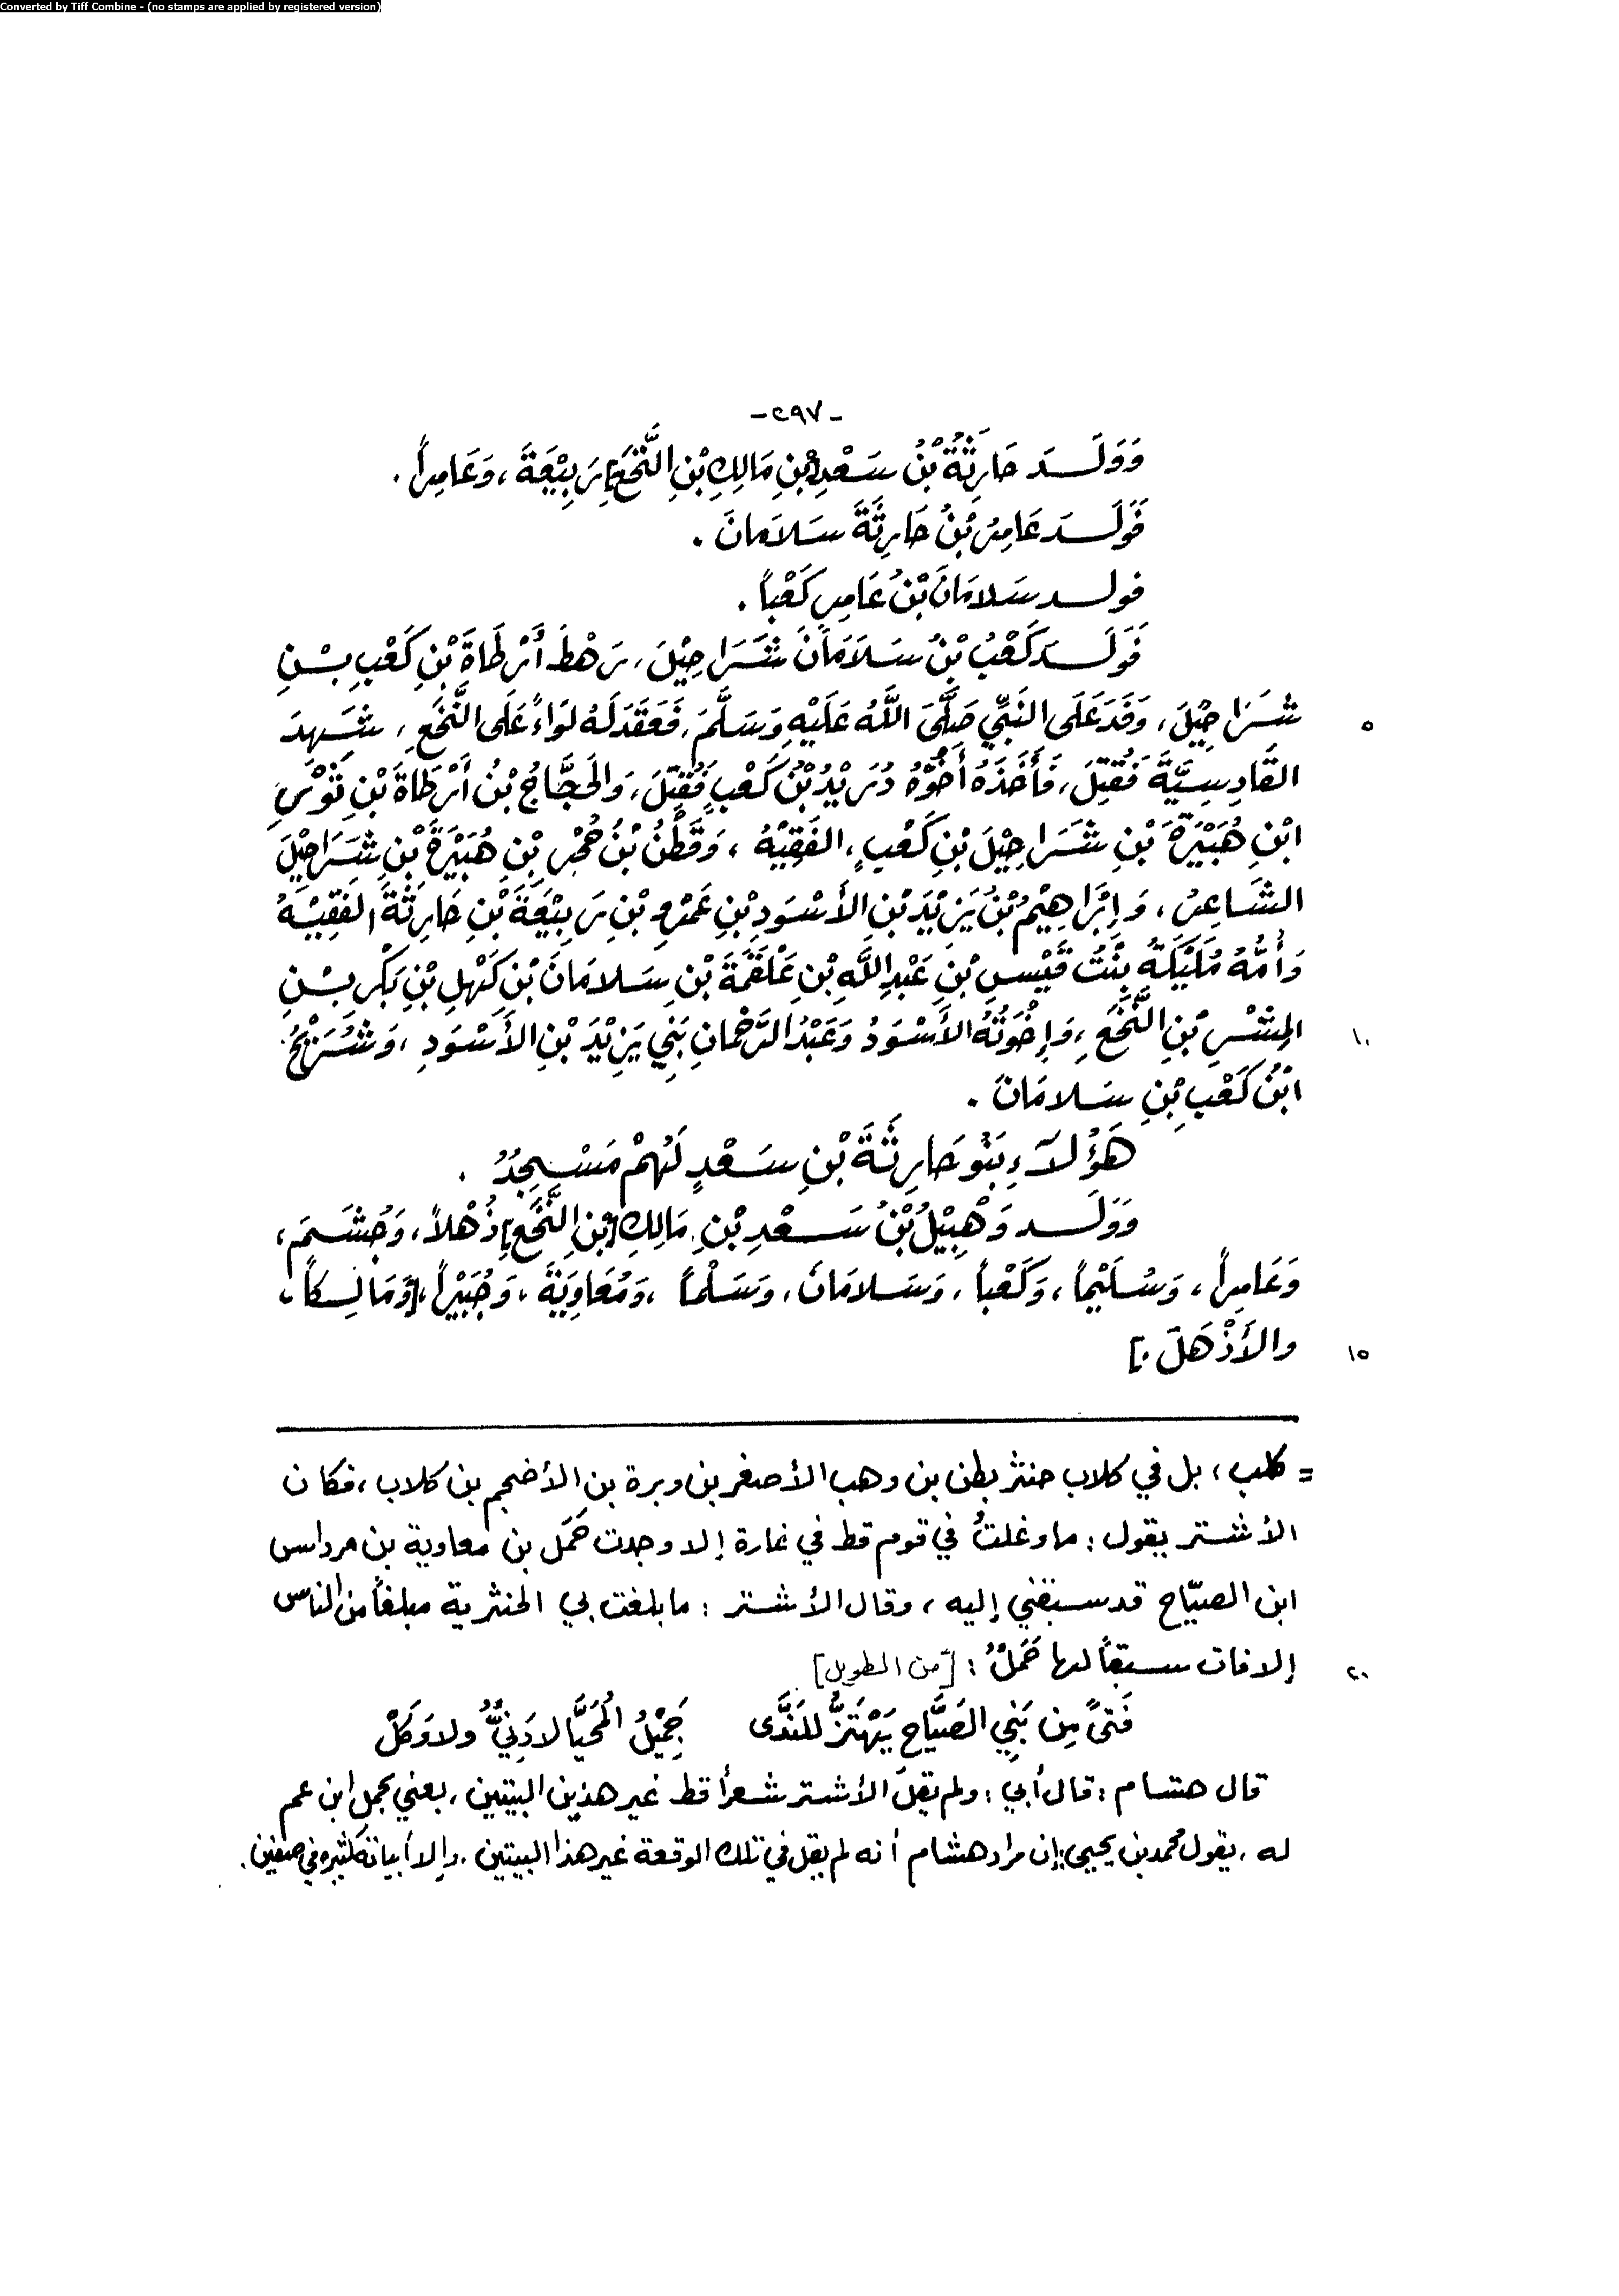 Converted by Tiff Combine - (no stamps are applied by registered version)
-٢٩٧-
وَوَلَـدَ حَارِثَةُ بْنُ سَعْدِ[بْنِ مَالِكِ بْنِ النَّخَعِ] رَبِيْعَةَ، وَعَامِراً.
فَوَلَـدَ عَامِرُ بْنُ حَارِثَةَ سَلاَمَانَ.
فولـد سَلامَانَ بْنُ عَامِرٍ كَعْباً.
فَوَلَـدَ كَعْبُ بْنُ سَلاَمَانَ شَرَاحِيْلَ، رَهْطَ أَرْطَاةَ بْنِ كَعْبِ بْـنِ
شَرَاحِيْلَ، وَفَدَ عَلَى النَبِّي صَلَّى اللَّهُ عَلَيْهِ وَسَلَّمَ، فَعَقَدَ لَهُ لِوَاءً عَلَى النَّخَعِ، شَهِدَ
٥
القَادِسِيَّةَ فَقُتِلَ، فَأَخَذَهُ أَخُوْهُ دُرَيْدُ بْنُ كَعْبٍ فَقُتِلَ، وَالحَجَّاجُ بْنُ أَرْطَاةَ بْنِ ثَوْسِ
ابْنِ هُبَيْرَةَ بْنِ شَرَاحِيْلَ بْنِ كَعْبٍ، الفَقِيْهُ، وَقَطَنُ بْنُ حُجْرِ بْنِ هُبَيْرَةَ بْنِ شَرَاحِيْلَ
الشَاعِرُ، وَإِبْرَاهِيْمُ بْنُ يَزِيْدَ بْنِ الأَسْوَدِ بْنِ عَمْرِو بْنِ رَبِيْعَةَ بْنِ حَارِثَةَ الفَقِيْـهُ
وَأُمُّهُ مُلَيْكَةُ بِنْتُ قَيْسِ بْنِ عَبْدِ اللَّهِ بْنِ عَلْقَمَةَ بْنِ سَلامَانَ بْنِ كَهْلِ بْنِ بَكْرِ بْـنِ
المِنْشَرِ بْنِ النَّخَعِ، وَإِخْوَتُهُ الأَسْوَدُ وَعَبْدُ الرَّحْمانِ بَنِي يَزِيْدَ بْنِ الأَسْوَدِ، وَشُرَيْحُ
١٠
ابْنُ كَعْبِ بْنِ سَلامَانَ.
هَؤُلاَءِ بَنُو حَارِثَةَ بْنِ سَعْدٍ لَهُمْ مَسْجِدٌ.
وَوَلَـد وَهْبِيْلُ بْنُ سَعْدِ بْنِ مَالِكِ[بْنِ النَّخَعِ] ذُهْلاً، وَجُشَـمَ،
وَعَامِراً، وَسُلَيْماً، وَكَعْباً، وَسَلامَانَ، وَسَلْماً، وَمُعَاوِيَةَ، وَجُبَيْراً،[وَمَالِـكاً،
والأَذْهَلَ.]
١٥
= كلب، بل في كلاب حنثر بطن بن وهب الأصغر بن وبرة بن الأضجم بن كلاب، فكان
الأشتر يقول: ما وغلتُ في قوم قط في غارة إلا وجدت حَمَل بن معاوية بن مرداس
ابن الصيّاح قد سبقني إليه، وقال الأشتر: ما بلغت بي الحنثرية مبلغاً من الناس
إلا فات سبقاً لها حَمَلٌ: [من الطويل]
٢٠
فَتىً مِن بَنِي الصَيَّاحِ يَهْتَزُّ للنَدَّى جَمِيْلُ المُحَيَّا لا دَنِيٌّ ولا وَكَلْ
قال هشام: قال أبي: ولم يقل الأشتر شعراً قط غير هذين البيتين، يعني بحمل ابن عم
له، يقول محمد بن يحيى: إن مراد هشام أنه لم يقل في تلك الوقعة غير هذا البيتين، وإلا أبياته كثيره في صفين.